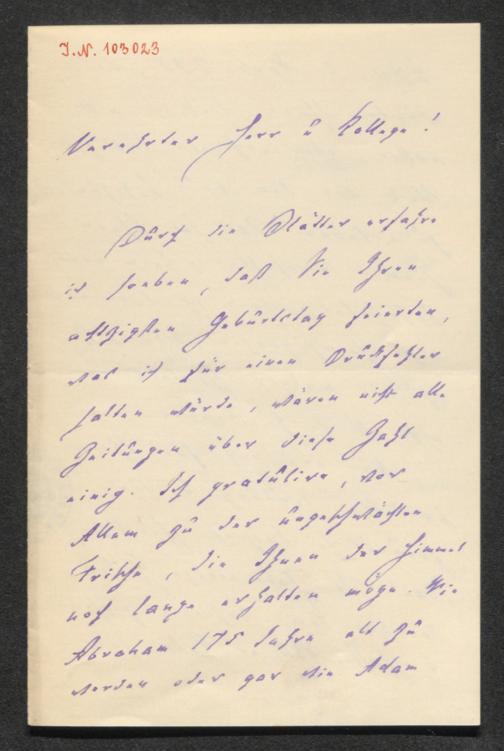 I.N. 103023
Verehrter Herr u Kollege!
Durch die Blätter erfahre
ich soeben, daß Sie Ihren
achtzigsten Geburtstag feierten,
was ich für einen Druckfehler
halten würde, wären nicht alle
Zeitungen über diese Zahl
einig. Ich gratulire, vor
Allem zu der ungeschwächten
Frische, die Ihnen der Himmel
noch lange erhalten möge. Wie
Abraham 175 Jahre alt zu
werden oder gar wie Adam